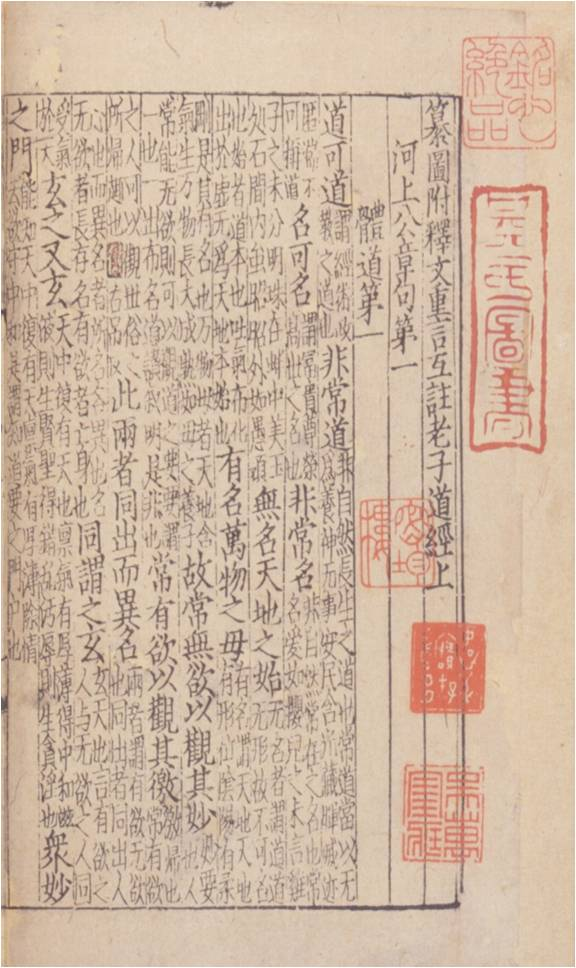 銘心絶品
纂圖附釋文重言互註老子道經上
河上公章句第一
體道第一
道可道謂經術政教之道也非常道非自然長生之道也常道當以无為養神无事安民含光藏暉滅迹
匿端不可稱道名可名謂富貴尊榮高世之名也非常名非自然常在之名也常名愛如嬰兒之未言雞
子之未分明珠在蚌中美玉処石間内虽昭昭外如愚頑無名天地之始无名者謂道道无形故不可名
也始者道本也吐氣布化出於虛无為天地本始也有名萬物之母有名謂天地天地有形位陰陽有柔
剛是其有名也万物母者天地含氣生万物長大成熟如母之養子故常無欲以觀其妙妙要也人
常能无欲則可以觀道之要要謂一也一出布名道讃叙明是非也常有欲以觀其徼徼歸也常有欲
之人可以觀世俗之所歸趣也此兩者同出而異名兩者謂有欲无欲也同出者同出人
心也而異名者所名各異也名无欲者長存名有欲者亡身也同謂之玄玄天也言有欲之人与无欲之人同
受氣於天玄之又玄天中復有天也禀氣有厚薄得中和滋液則生賢聖得錯乱汚辱則生貪淫也衆妙
之門能知天中復有天禀氣有厚薄除情去欲守中和是謂知道要之門戶也